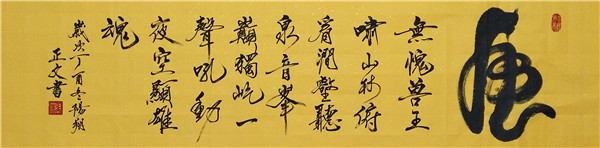 虎
無愧兽王
嘯山林俯
看澗壑聽
泉音峯
巔獨屹一
聲吼動
夜空顯雄
魂
歲次丁酉冬陽
正文書